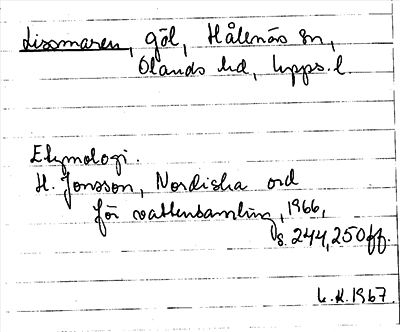 Lissmaren, göl, Hållnäs sn,
Olands hd, Upps. l.
Etymologi.
H. Jonsson, Nordiska ord
för vattensamling, 1966,
s. 244, 250 ff.
L.K. 1967.